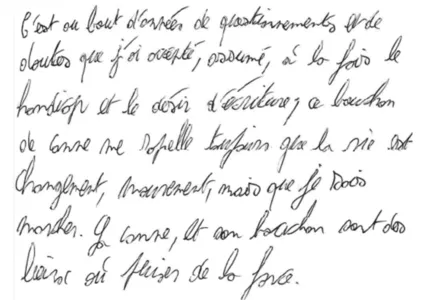 C'est au bout d'années de questionnements et de
doutes que j'ai accepté, assumé, à la fois le
handicap et le désir d'écriture, ce bouchon
de canne me rapelle toujours que la vie est
changement, mouvement, mais que je dois
marcher. La canne, et son bouchon sont des
lieux où puiser de la force.